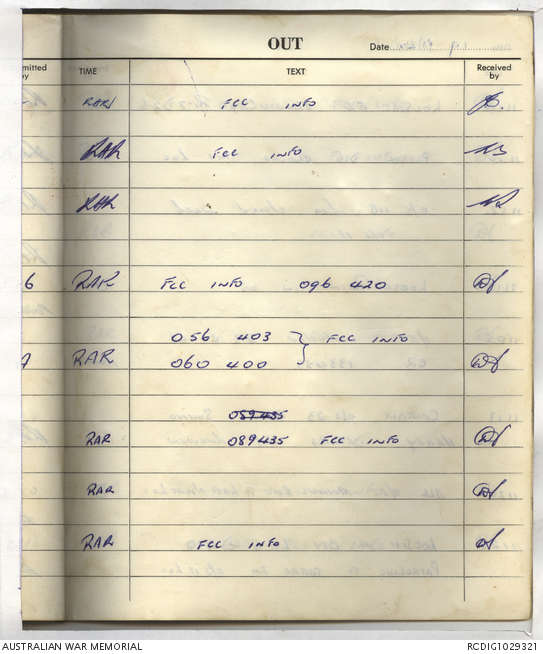 OUT
Date
mitted by
TIME
TEXT
Received by
RAR FCC INFO
RAR FCC INFO
RAR
6 RAR FCC INFO 096 420
056 403 } FCC INFO
RAR 060 400
089435
RAR 089435 FCC INFO
RAR
RAR FCC INFO
AUSTRALIAN WAR MEMORIAL
RCDIG1029321